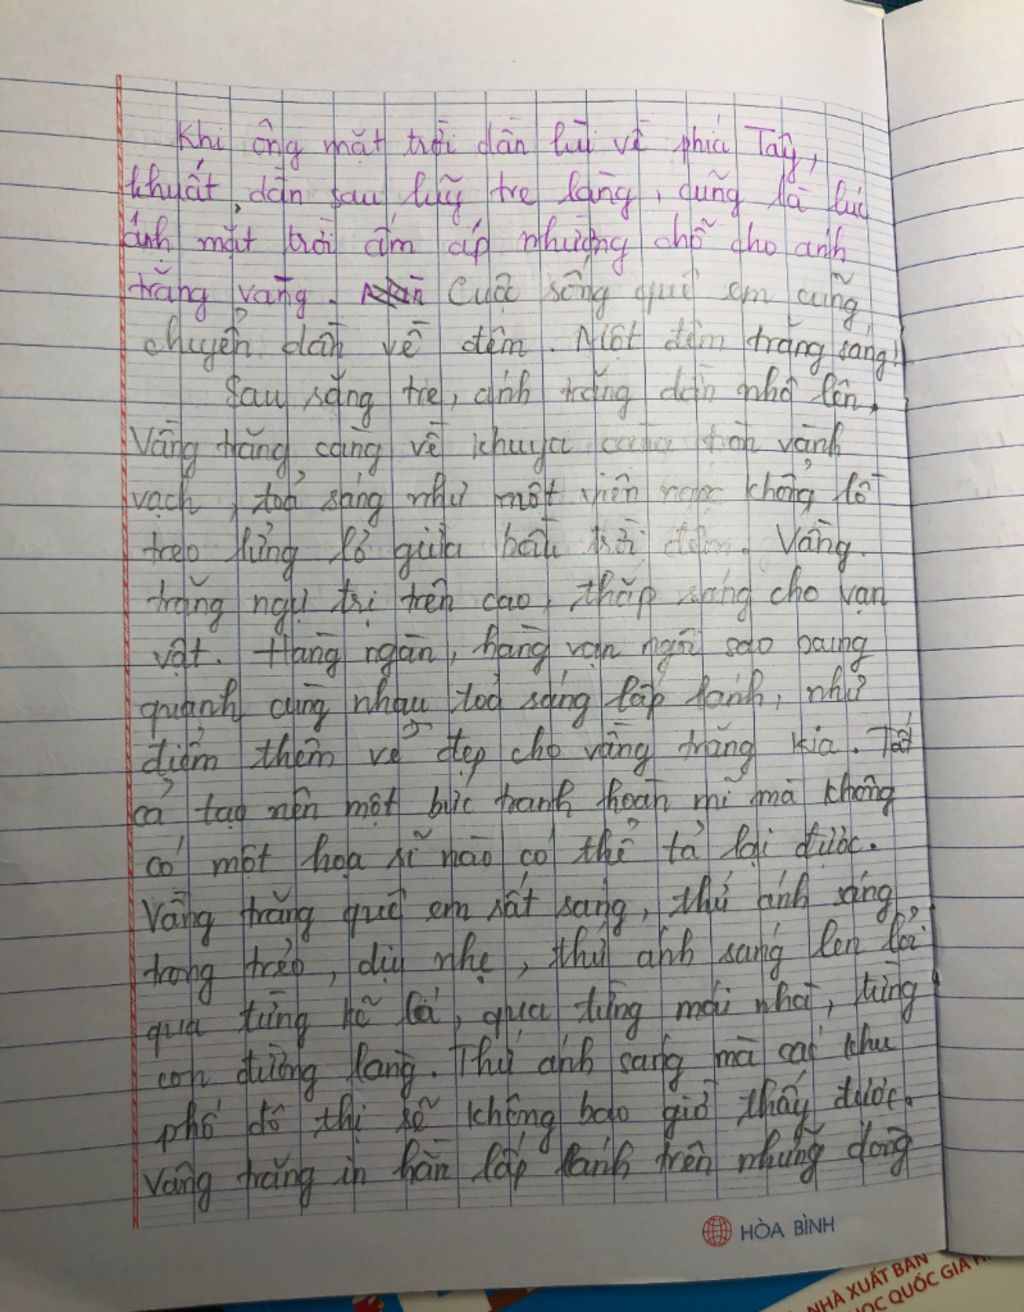 Khi ông mặt trời dần lùi về phía Tây,
khuất dần sau luỹ tre làng, cũng là lúc
ánh mặt trời ấm áp nhường chỗ cho ánh
trăng vàng. Cuộc sống quê em cũng
chuyển dần về đêm. Một đêm trăng sáng!
Sau rặng tre, ánh trăng dần nhô lên.
Vầng trăng càng về khuya càng tròn vành
vạch, toả sáng như một viên ngọc khổng lồ
treo lửng lơ giữa bầu trời đêm. Vầng
trăng ngự trị trên cao, thắp sáng cho vạn
vật. Hàng ngàn, hàng vạn ngôi sao xung
quanh cùng nhau toả sáng lấp lánh, như
điểm thêm vẻ đẹp cho vầng trăng kia. Tất
cả tạo nên một bức tranh hoàn mĩ mà không
có một hoạ sĩ nào có thể tả lại được.
Vầng trăng quê em rất sáng, thứ ánh sáng
trong trẻo, dịu nhẹ, thứ ánh sáng len lỏi
qua từng kẽ lá, qua từng mái nhà, từng
con đường làng. Thứ ánh sáng mà các khu
phố đô thị sẽ không bao giờ thấy được.
Vầng trăng in hằn lấp lánh trên những dòng
HÒA BÌNH
NHÀ XUẤT BẢN
HỌC QUỐC GIA